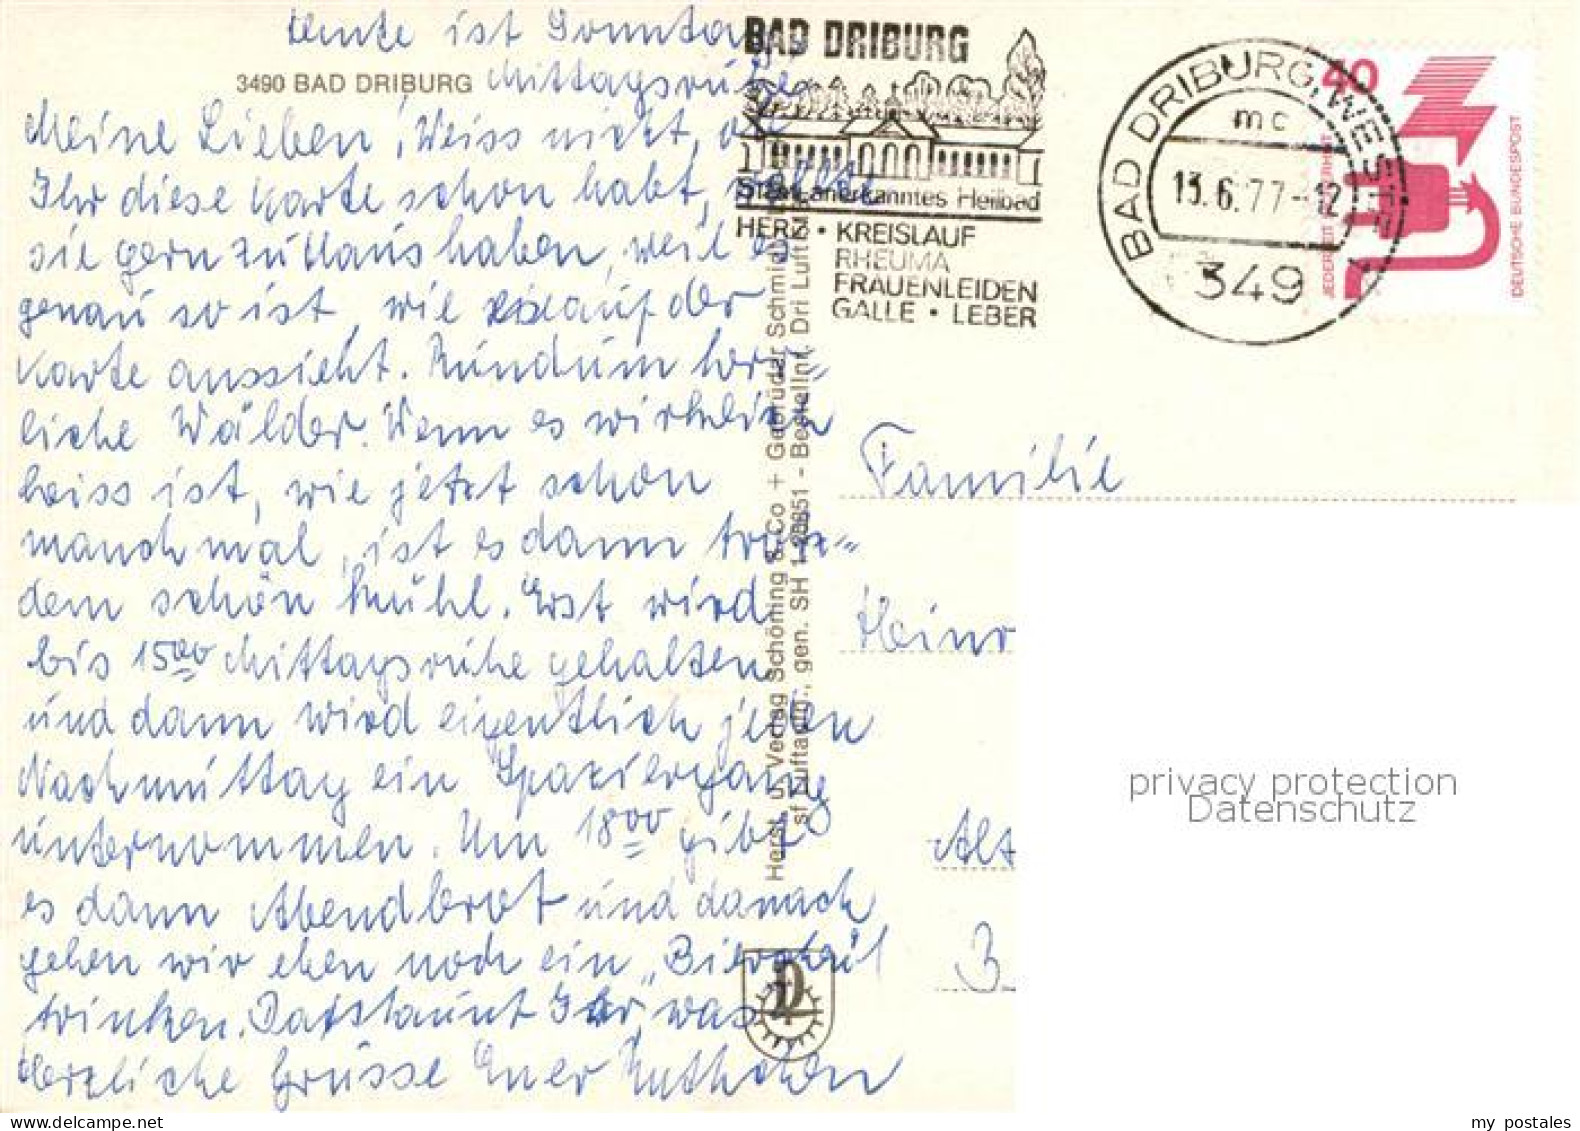 Heute ist Sonntag,
Mittagsruhe
3490 BAD DRIBURG
Meine Lieben! Weiss nicht, ob
Ihr diese Karte schon habt, wollte
sie gern zu Haus haben, weil es
genau so ist, wie auf der
Karte aussieht. Rundum herr=
liche Wälder. Wenn es wirklich
heiss ist, wie jetzt schon
manchmal, ist es dann trotz=
dem schön kühl. Erst wird
bis 15 00 Mittagsruhe gehalten
und dann wird eigentlich jeden
Nachmittag ein Spaziergang
unternommen. Um 18 00 gibt
es dann Abendbrot und danach
gehen wir eben noch ein
trinken. Da staunt Ihr, was
Herzliche Grüsse Euer
BAD DRIBURG
Staatl. anerkanntes Heilbad
HERZ • KREISLAUF
RHEUMA
FRAUENLEIDEN
GALLE • LEBER
BAD DRIBURG, WESTF
mc
13.6.77-12
349
40
JEDERZEIT SICHERHEIT
DEUTSCHE BUNDESPOST
Herst. u. Verlag Schöning & Co + Gebrüder Schmidt
Familie
Heinr
Alt
3
privacy protection
Datenschutz
my postales